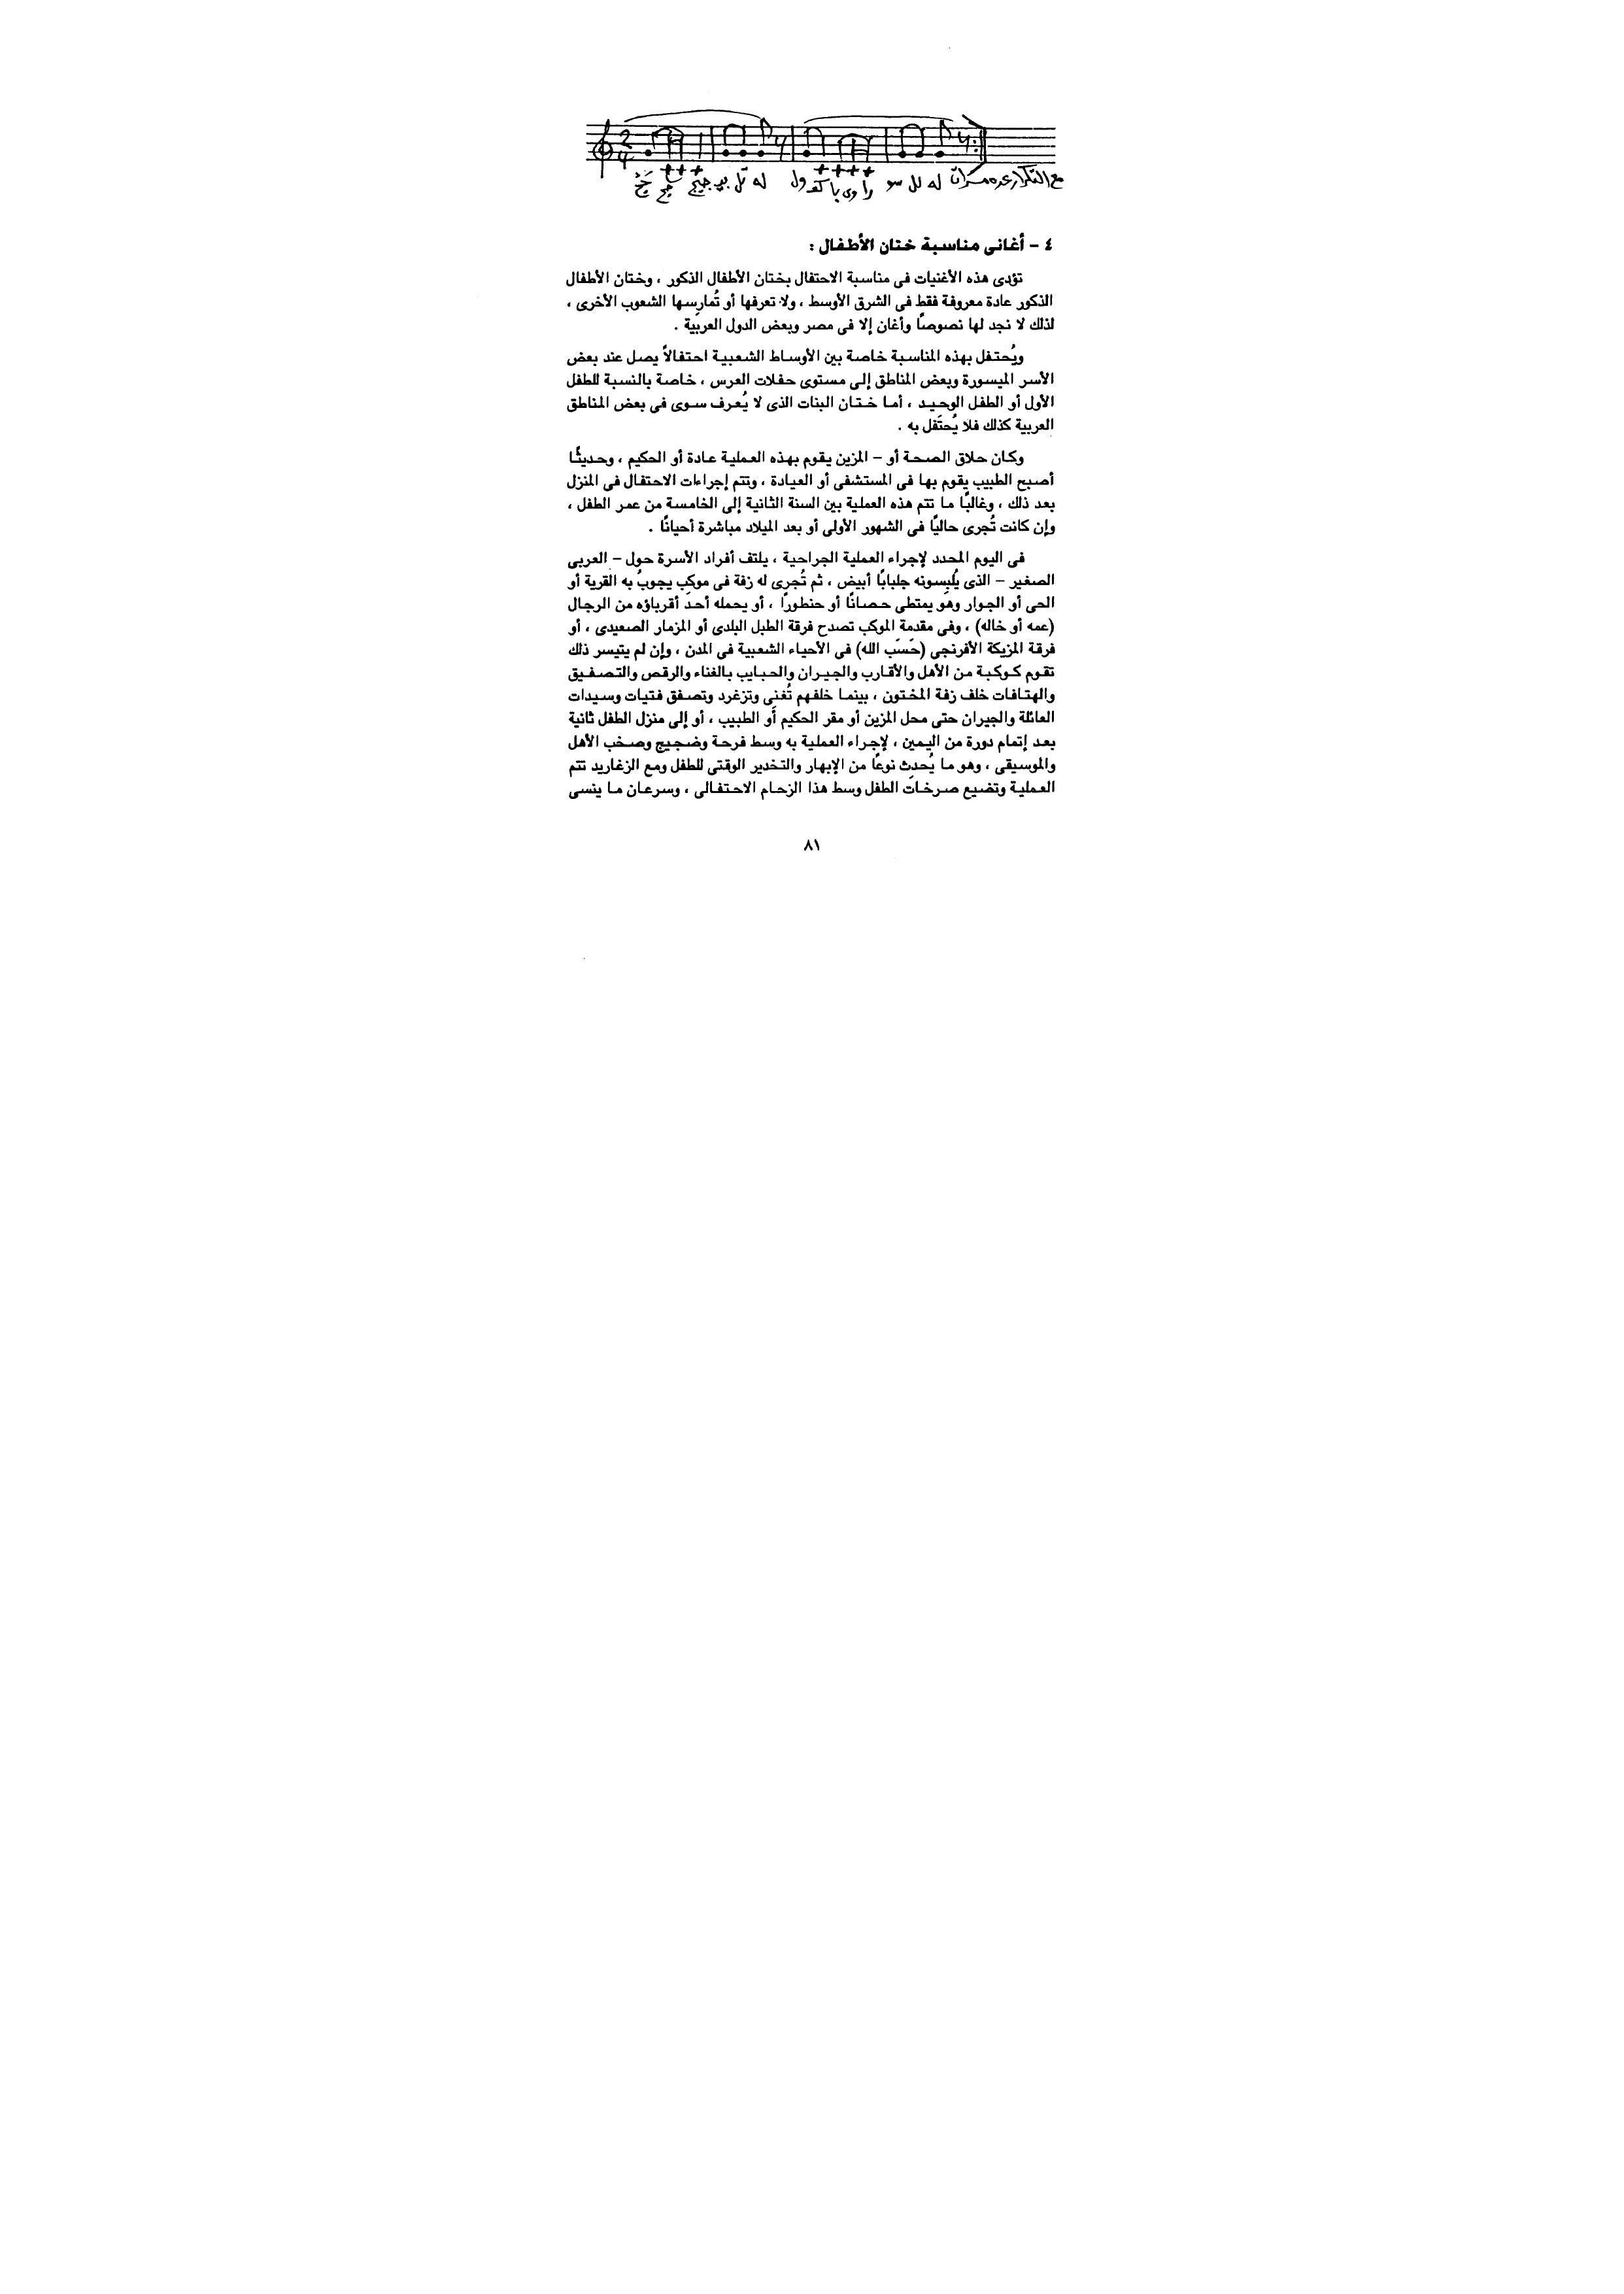 مع التكرار عدة مرات
٤ – أغانى مناسبة ختان الأطفال :
تؤدى هذه الأغنيات فى مناسبة الاحتفال بختان الأطفال الذكور ، وختان الأطفال
الذكور عادة معروفة فقط فى الشرق الأوسط ، ولا تعرفها أو تُمارِسها الشعوب الأخرى ،
لذلك لا نجد لها نصوصًا وأغان إلا فى مصر وبعض الدول العربية .
ويُحتفل بهذه المناسبة خاصة بين الأوساط الشعبية احتفالاً يصل عند بعض
الأسر الميسورة وبعض المناطق إلى مستوى حفلات العرس ، خاصة بالنسبة للطفل
الأول أو الطفل الوحيد ، أما ختان البنات الذى لا يُعرف سوى فى بعض المناطق
العربية كذلك فلا يُحتَفل به .
وكان حلاق الصحة أو – المزين يقوم بهذه العملية عادة أو الحكيم ، وحديثًا
أصبح الطبيب يقوم بها فى المستشفى أو العيادة ، وتتم إجراءات الاحتفال فى المنزل
بعد ذلك ، وغالبًا ما تتم هذه العملية بين السنة الثانية إلى الخامسة من عمر الطفل ،
وإن كانت تُجرى حاليًا فى الشهور الأولى أو بعد الميلاد مباشرة أحيانًا .
فى اليوم المحدد لإجراء العملية الجراحية ، يلتف أفراد الأسرة حول – العربى
الصغير – الذى يُلبِسونه جلبابًا أبيض ، ثم تُجرى له زفة فى موكب يجوبُ به القرية أو
الحى أو الجوار وهو يمتطى حصانًا أو حنطورًا ، أو يحمله أحدَ أقرباؤه من الرجال
(عمه أو خاله) ، وفى مقدمة الموكب تصدح فرقة الطبل البلدى أو المزمار الصعيدى ، أو
فرقة المزيكة الأفرنجى (حَسَب الله) فى الأحياء الشعبية فى المدن ، وإن لم يتيسر ذلك
تقوم كوكبة من الأهل والأقارب والجيران والحبايب بالغناء والرقص والتصفيق
والهتافات خلف زفة المختون ، بينما خلفهم تُغنى وتزغرد وتصفق فتيات وسيدات
العائلة والجيران حتى محل المزين أو مقر الحكيم أو الطبيب ، أو إلى منزل الطفل ثانية
بعد إتمام دورة من اليمين ، لإجراء العملية به وسط فرحة وضجيج وصخب الأهل
والموسيقى ، وهو ما يُحدِث نوعًا من الإبهار والتخدير الوقتى للطفل ومع الزغاريد تتم
العملية وتضيع صرخات الطفل وسط هذا الزحام الاحتفالى ، وسرعان ما ينسى
٨١